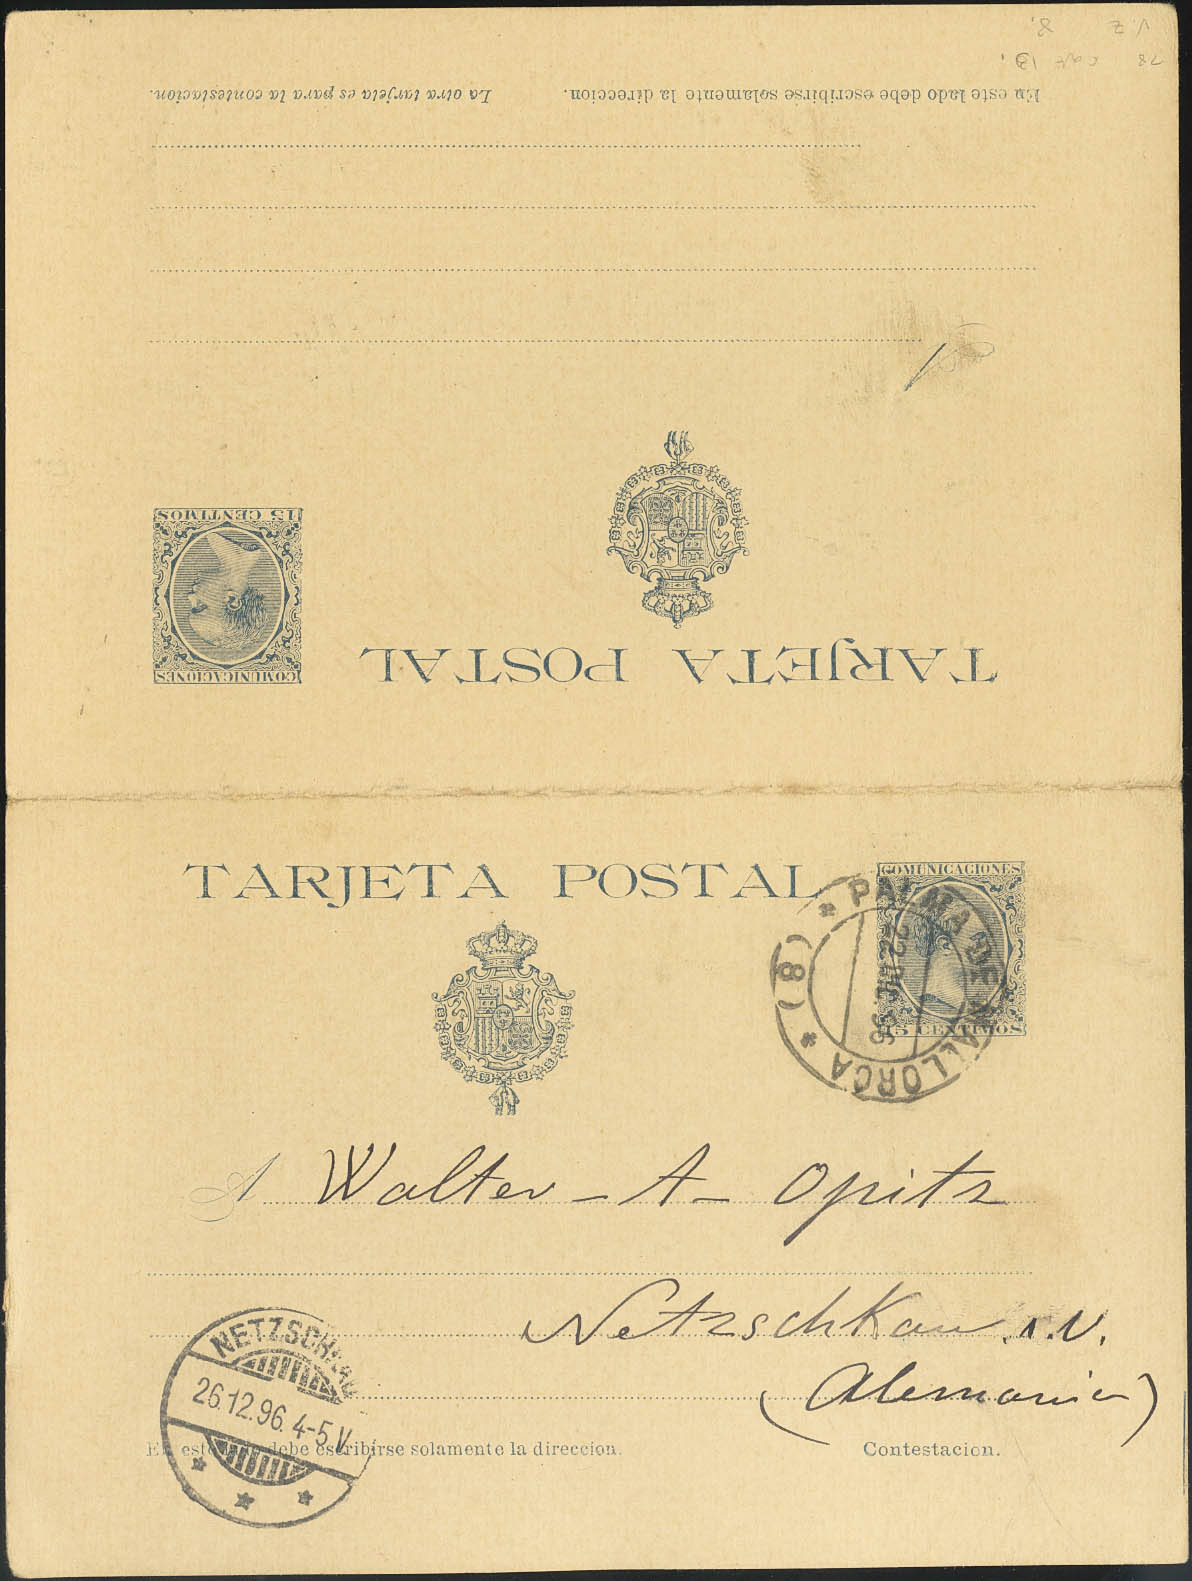 En este lado debe escribirse solamente la direccion.
La otra tarjeta es para la contestacion.
A
15 CENTIMOS
COMUNICACIONES
TARJETA POSTAL
TARJETA POSTAL
COMUNICACIONES
15 CENTIMOS
* PALMA DE MALLORCA * (8)
22 DIC 96
A Walter - A - Opitz
Netzschkau i. V.
(Alemania)
NETZSCHKAU
26.12.96. 4-5 V
En este lado debe escribirse solamente la direccion.
Contestacion.